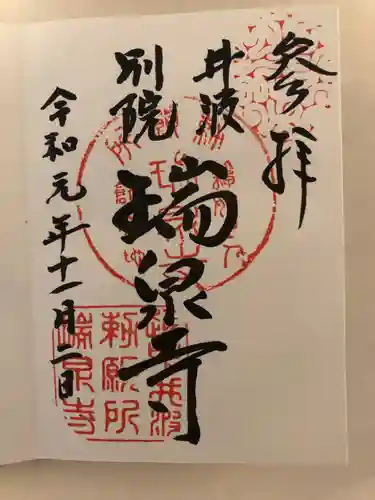 参拝
井波
別院
瑞泉寺
令和元年十一月二日
勅願所
瑞泉寺